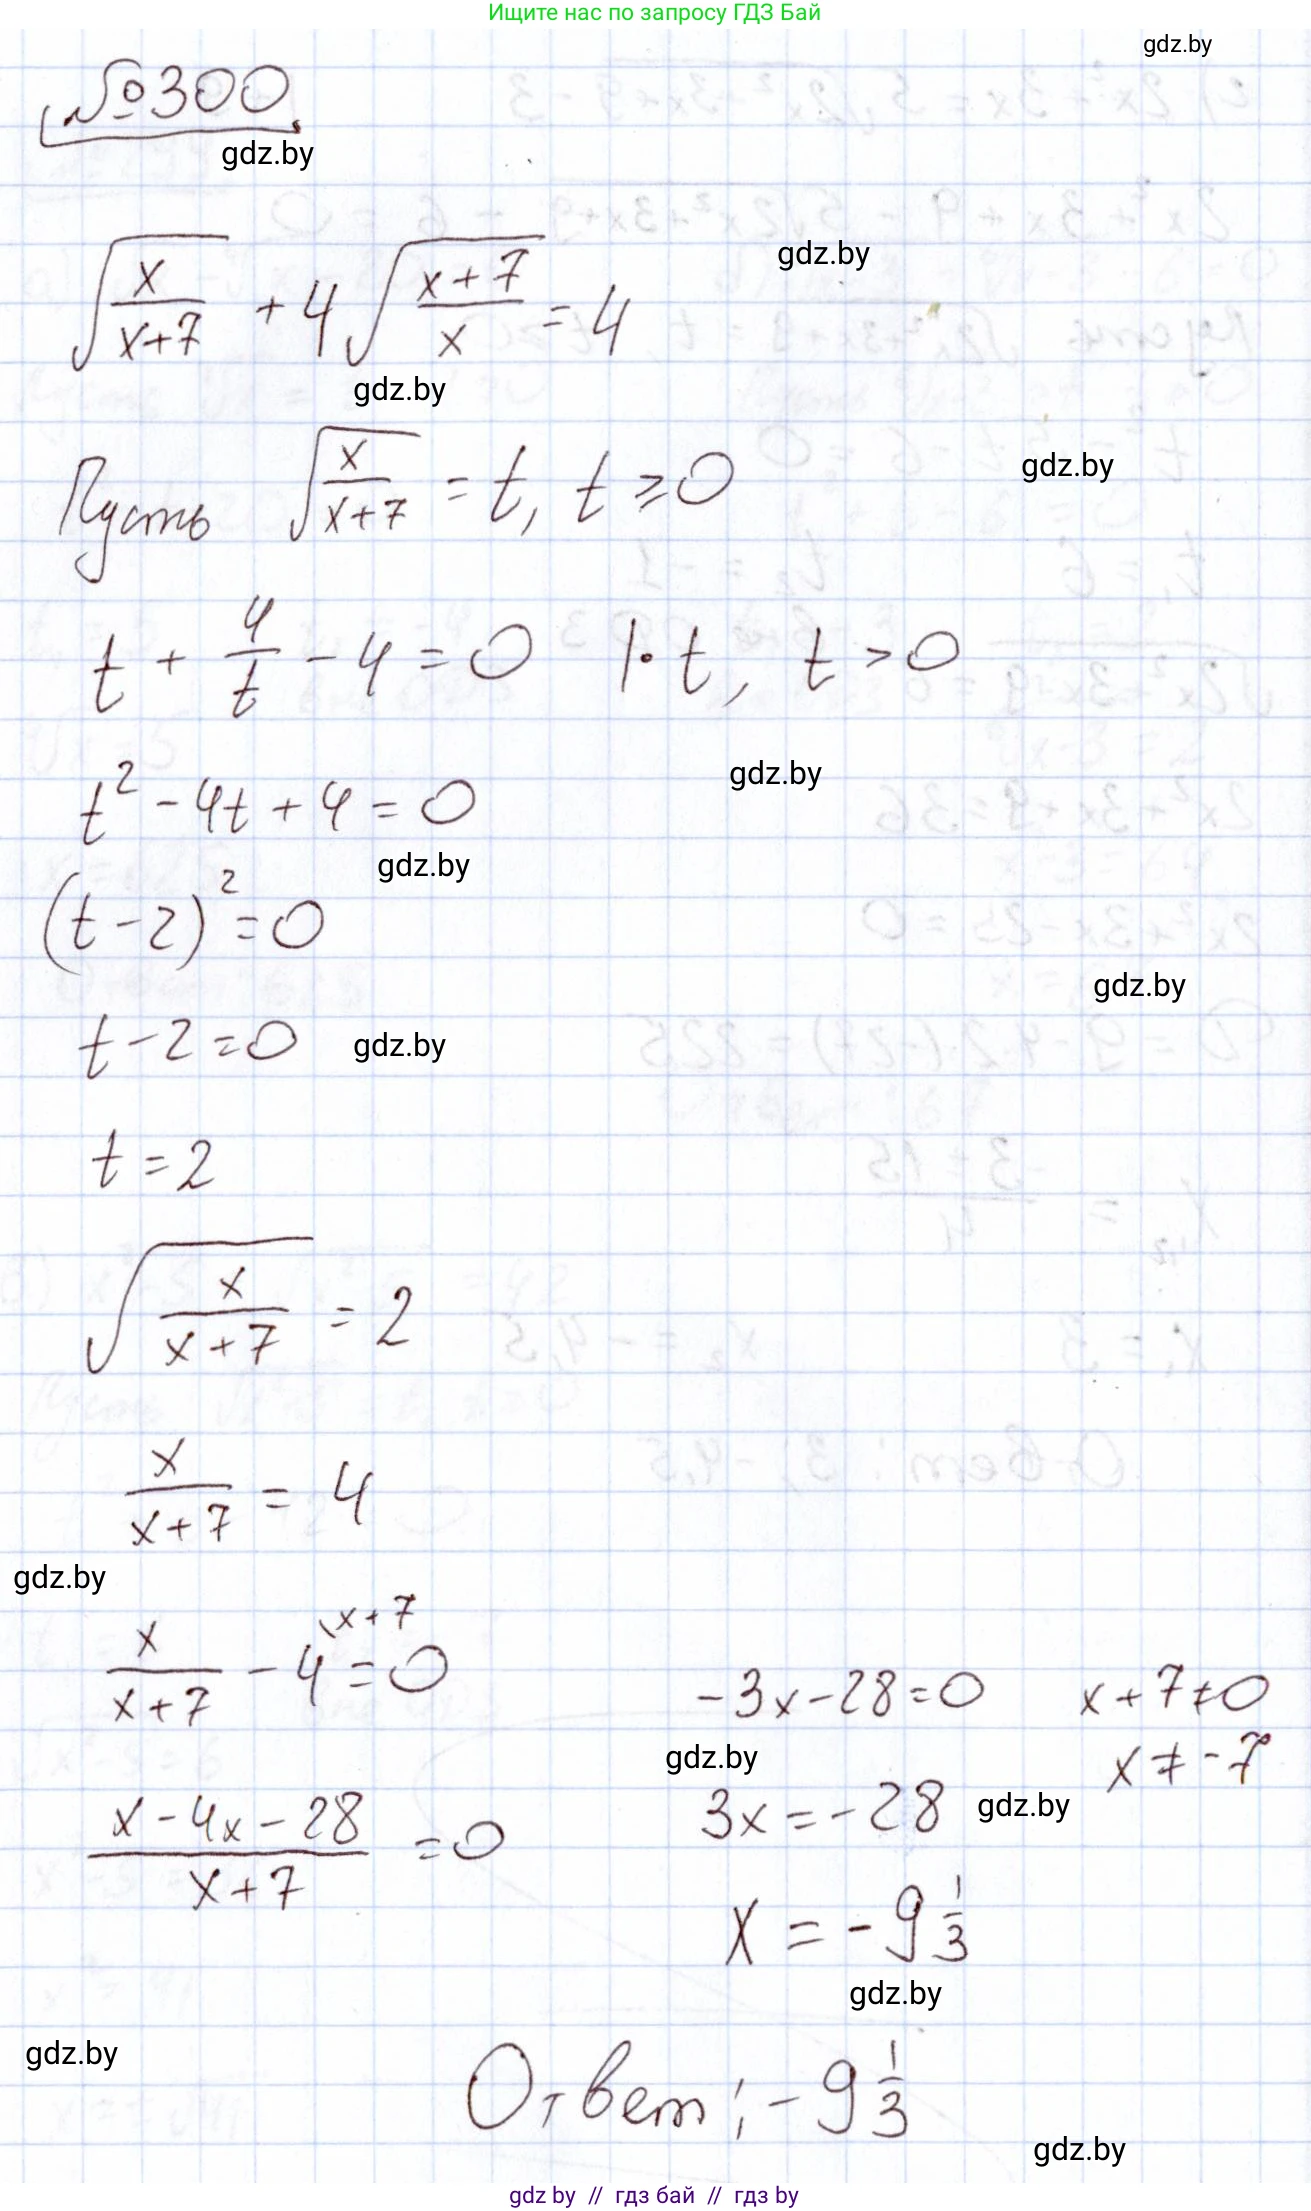 Ищите нас по запросу ГДЗ Бай
gdz.by
№300
gdz.by
√(x/(x+7)) + 4√((x+7)/x) = 4
gdz.by
gdz.by
Пусть √(x/(x+7)) = t, t ≥ 0
gdz.by
t + 4/t - 4 = 0 |· t, t > 0
gdz.by
t² - 4t + 4 = 0
gdz.by
(t - 2)² = 0
gdz.by
t - 2 = 0
gdz.by
t = 2
√(x/(x+7)) = 2
x/(x+7) = 4
gdz.by
x/(x+7) - 4 \x+7 = 0
(x - 4x - 28)/(x+7) = 0
-3x - 28 = 0 x + 7 ≠ 0
gdz.by
x ≠ -7
3x = -28
gdz.by
x = -9 1/3
gdz.by
gdz.by
Ответ: -9 1/3
gdz.by
gdz by // гдз бай // гдз by